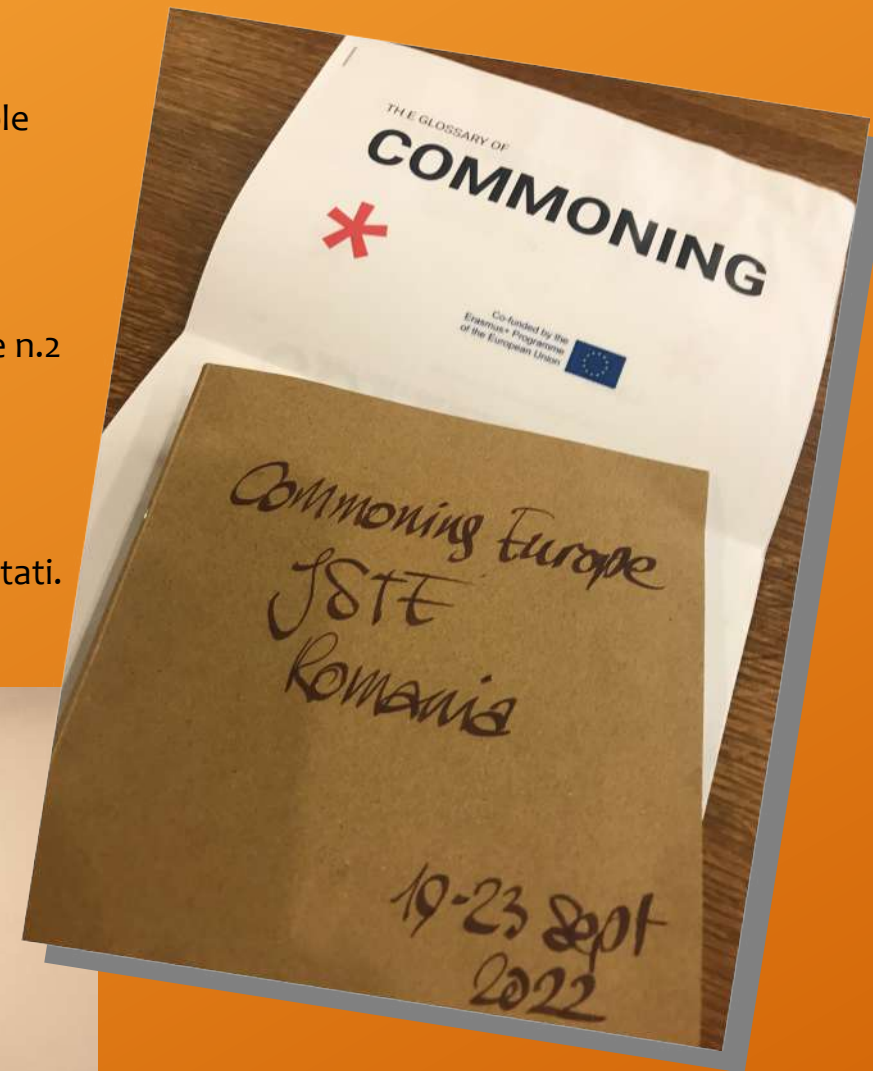 le
e n.2
tati.
THE GLOSSARY OF
COMMONING
*
Co-funded by the
Erasmus+ Programme
of the European Union
Commoning Europe
JSTE
Romania
19-23 Sept
2022